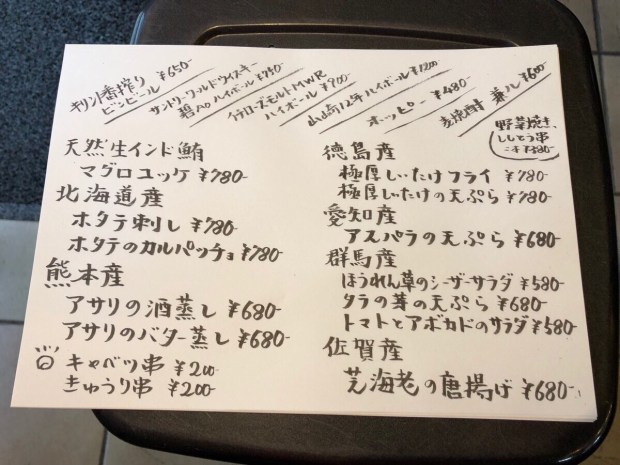 キリン一番搾り
ビンビール ¥650
サントリーワールドウイスキー
碧Ao ハイボール ¥750
イチローズモルトMWR
ハイボール ¥900
山崎12年ハイボール ¥1200
ホッピー ¥480
麦焼酎 兼八 ¥600
野菜焼き、
ししとう串
天然生インド鮪
マグロユッケ ¥780-
北海道産
ホタテ刺し ¥780-
ホタテのカルパッチョ ¥780-
熊本産
アサリの酒蒸し ¥680-
アサリのバター蒸し ¥680-
キャベツ串 ¥200-
きゅうり串 ¥200-
徳島産
極厚しいたけフライ ¥780-
極厚しいたけの天ぷら ¥780-
愛知産
アスパラの天ぷら ¥680-
群馬産
ほうれん草のシーザーサラダ ¥580-
タラの芽の天ぷら ¥680-
トマトとアボカドのサラダ ¥580-
佐賀産
芝海老の唐揚げ ¥680-